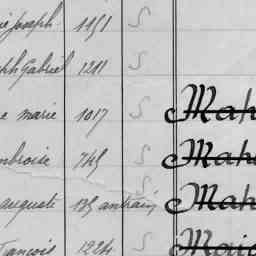 ie Joseph 1151 S
ph Gabriel 1211 S
e marie 1017 S Mah
mbroise 745 S Mahe
auguste 135 antrain S Mah
rançois 1224 S